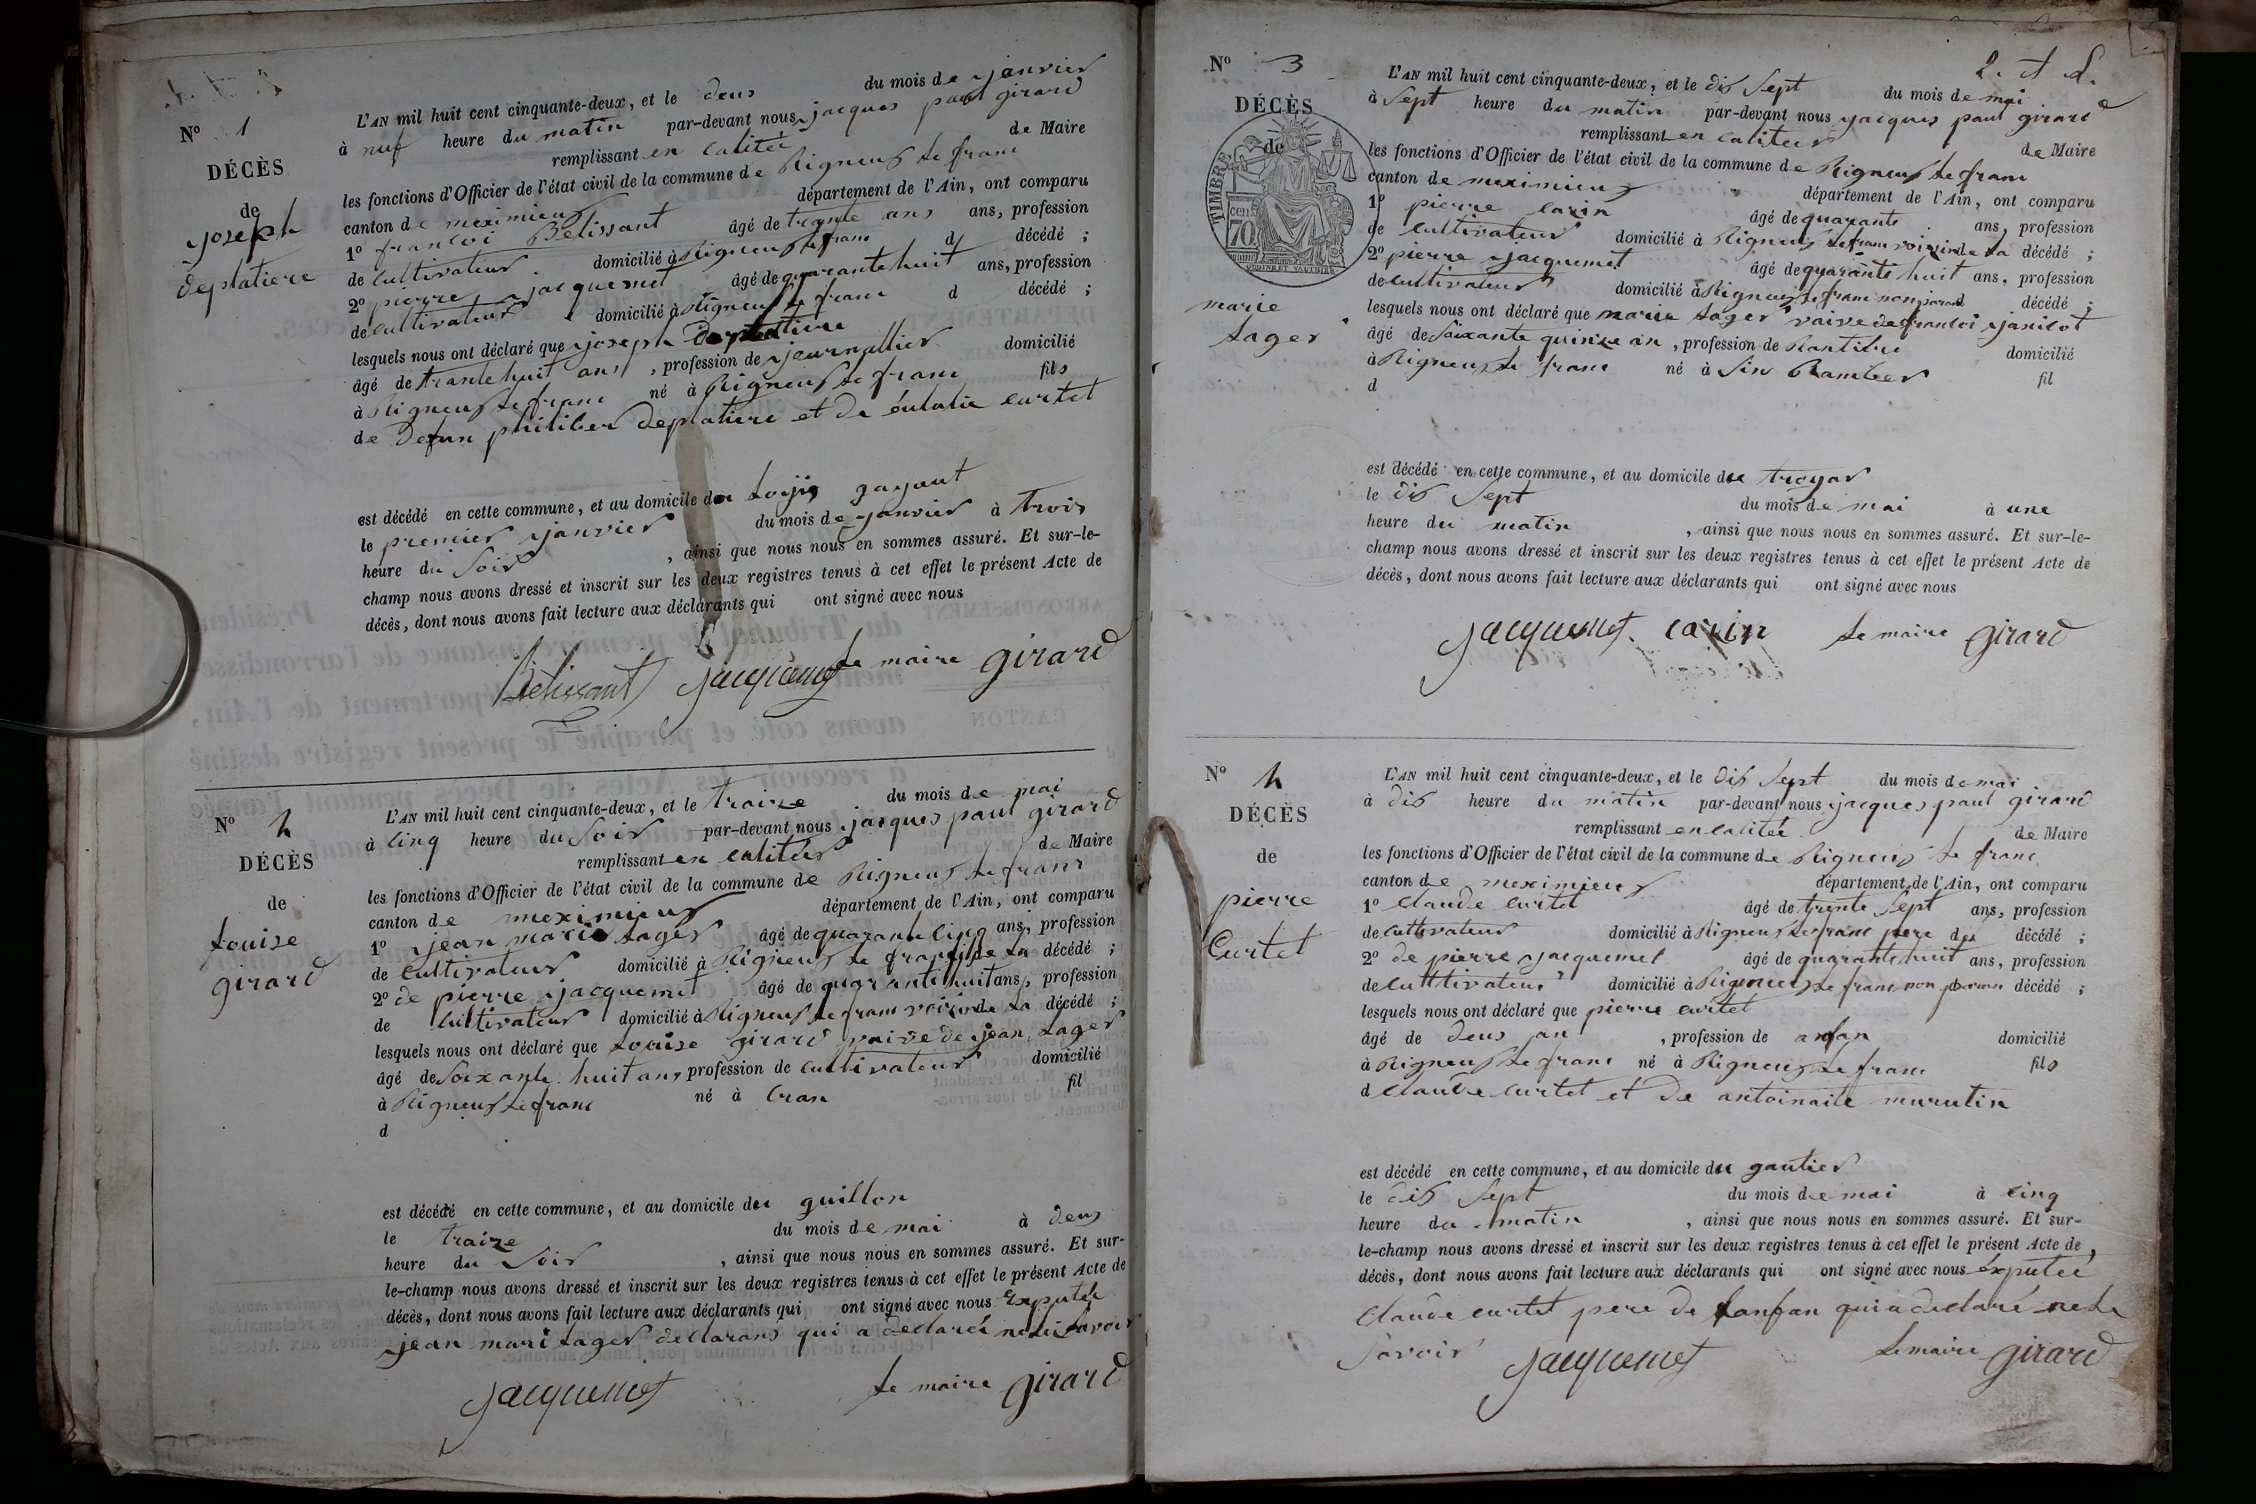 N° 1
DÉCÈS
de
joseph
deplatiere
L'AN mil huit cent cinquante-deux, et le deus du mois de janvier
à nuf heure du matin par-devant nous jacques paul girard
remplissant en calitée de Maire
les fonctions d'Officier de l'état civil de la commune de Rigneus le franc
canton de meximieus département de l'Ain, ont comparu
1° francoi Belissant âgé de trente ans ans, profession
de cultivateur domicilié à Rigneus le franc d décédé ;
2° pierre jacquemet âgé de quarante huit ans, profession
de cultivateur domicilié à Rigneus le franc d décédé ;
lesquels nous ont déclaré que joseph deplatiere
âgé de trante huit ans, profession de journallier domicilié
à Rigneus le franc né à Rigneus le franc fils
de defun philiber deplatiere et de éulalie curtet
est décédé en cette commune, et au domicile du
le premier janvier du mois de janvier à trois
heure du soir, ainsi que nous nous en sommes assuré. Et sur-le-
champ nous avons dressé et inscrit sur les deux registres tenus à cet effet le présent Acte de
décès, dont nous avons fait lecture aux déclarants qui ont signé avec nous
Belissant jacquemet le maire girard
N° 2
DÉCÈS
de
Louise
girard
L'AN mil huit cent cinquante-deux, et le traize du mois de mai
à cinq heure du soir par-devant nous jacques paul girard
remplissant en calitée de Maire
les fonctions d'Officier de l'état civil de la commune de Rigneus le franc
canton de meximieus département de l'Ain, ont comparu
1° jean marie Lager âgé de quarante cinq ans, profession
de cultivateur domicilié à Rigneus le franc fils de la décédé ;
2° de pierre jacquemet âgé de quarante huit ans, profession
de cultivateur domicilié à Rigneus le franc voizin de la décédé ;
lesquels nous ont déclaré que Louise girard vaive de jean Lager
âgé de soixante huit ans profession de cultivateur domicilié
à Rigneus le franc né à cran fil
d
est décédé en cette commune, et au domicile du guillon
le traize du mois de mai à deus
heure du soir, ainsi que nous nous en sommes assuré. Et sur-
le-champ nous avons dressé et inscrit sur les deux registres tenus à cet effet le présent Acte de
décès, dont nous avons fait lecture aux déclarants qui ont signé avec nous
jean mari Lager declarans qui a declaré
jacquemet le maire girard
N° 3
DÉCÈS
de
TIMBRE
70
marie
Lager
L'AN mil huit cent cinquante-deux, et le dis sept du mois de mai
à sept heure du matin par-devant nous jacques paul girard
remplissant en calitée de Maire
les fonctions d'Officier de l'état civil de la commune de Rigneus le franc
canton de meximieus département de l'Ain, ont comparu
1° pierre carin âgé de quarante ans, profession
de cultivateur domicilié à Rigneus le franc voizin de la décédé ;
2° pierre jacquemet âgé de quarante huit ans, profession
de cultivateur domicilié à Rigneus le franc non parand décédé ;
lesquels nous ont déclaré que marie Lager vaive de francoi janicot
âgé de soixante quinze an, profession de Rantiere domicilié
à Rigneus le franc né à Sin Ramber fil
d
est décédé en cette commune, et au domicile du troyar
le dis sept du mois de mai à une
heure du matin, ainsi que nous nous en sommes assuré. Et sur-le-
champ nous avons dressé et inscrit sur les deux registres tenus à cet effet le présent Acte de
décès, dont nous avons fait lecture aux déclarants qui ont signé avec nous
jacquemet carin le maire girard
N° 4
DÉCÈS
de
pierre
Curtet
L'AN mil huit cent cinquante-deux, et le dis sept du mois de mai
à dis heure du matin par-devant nous jacques paul girard
remplissant en calitée de Maire
les fonctions d'Officier de l'état civil de la commune de Rigneus le franc
canton de meximieus département de l'Ain, ont comparu
1° claude curtet âgé de trente sept ans, profession
de cultivateur domicilié à Rigneus le franc pere du décédé ;
2° de pierre jacquemet âgé de quarante huit ans, profession
de culttivateur domicilié à Rigneus le franc non paran décédé ;
lesquels nous ont déclaré que pierre curtet
âgé de deus an, profession de anfan domicilié
à Rigneus le franc né à Rigneus le franc fils
d claude curtet et de antoinaite murutin
est décédé en cette commune, et au domicile du gautier
le dis sept du mois de mai à cinq
heure du matin, ainsi que nous nous en sommes assuré. Et sur-
le-champ nous avons dressé et inscrit sur les deux registres tenus à cet effet le présent Acte de
décès, dont nous avons fait lecture aux déclarants qui ont signé avec nous
claude curtet pere de lanfan qui a declaré ne le
savoir jacquemet le maire girard